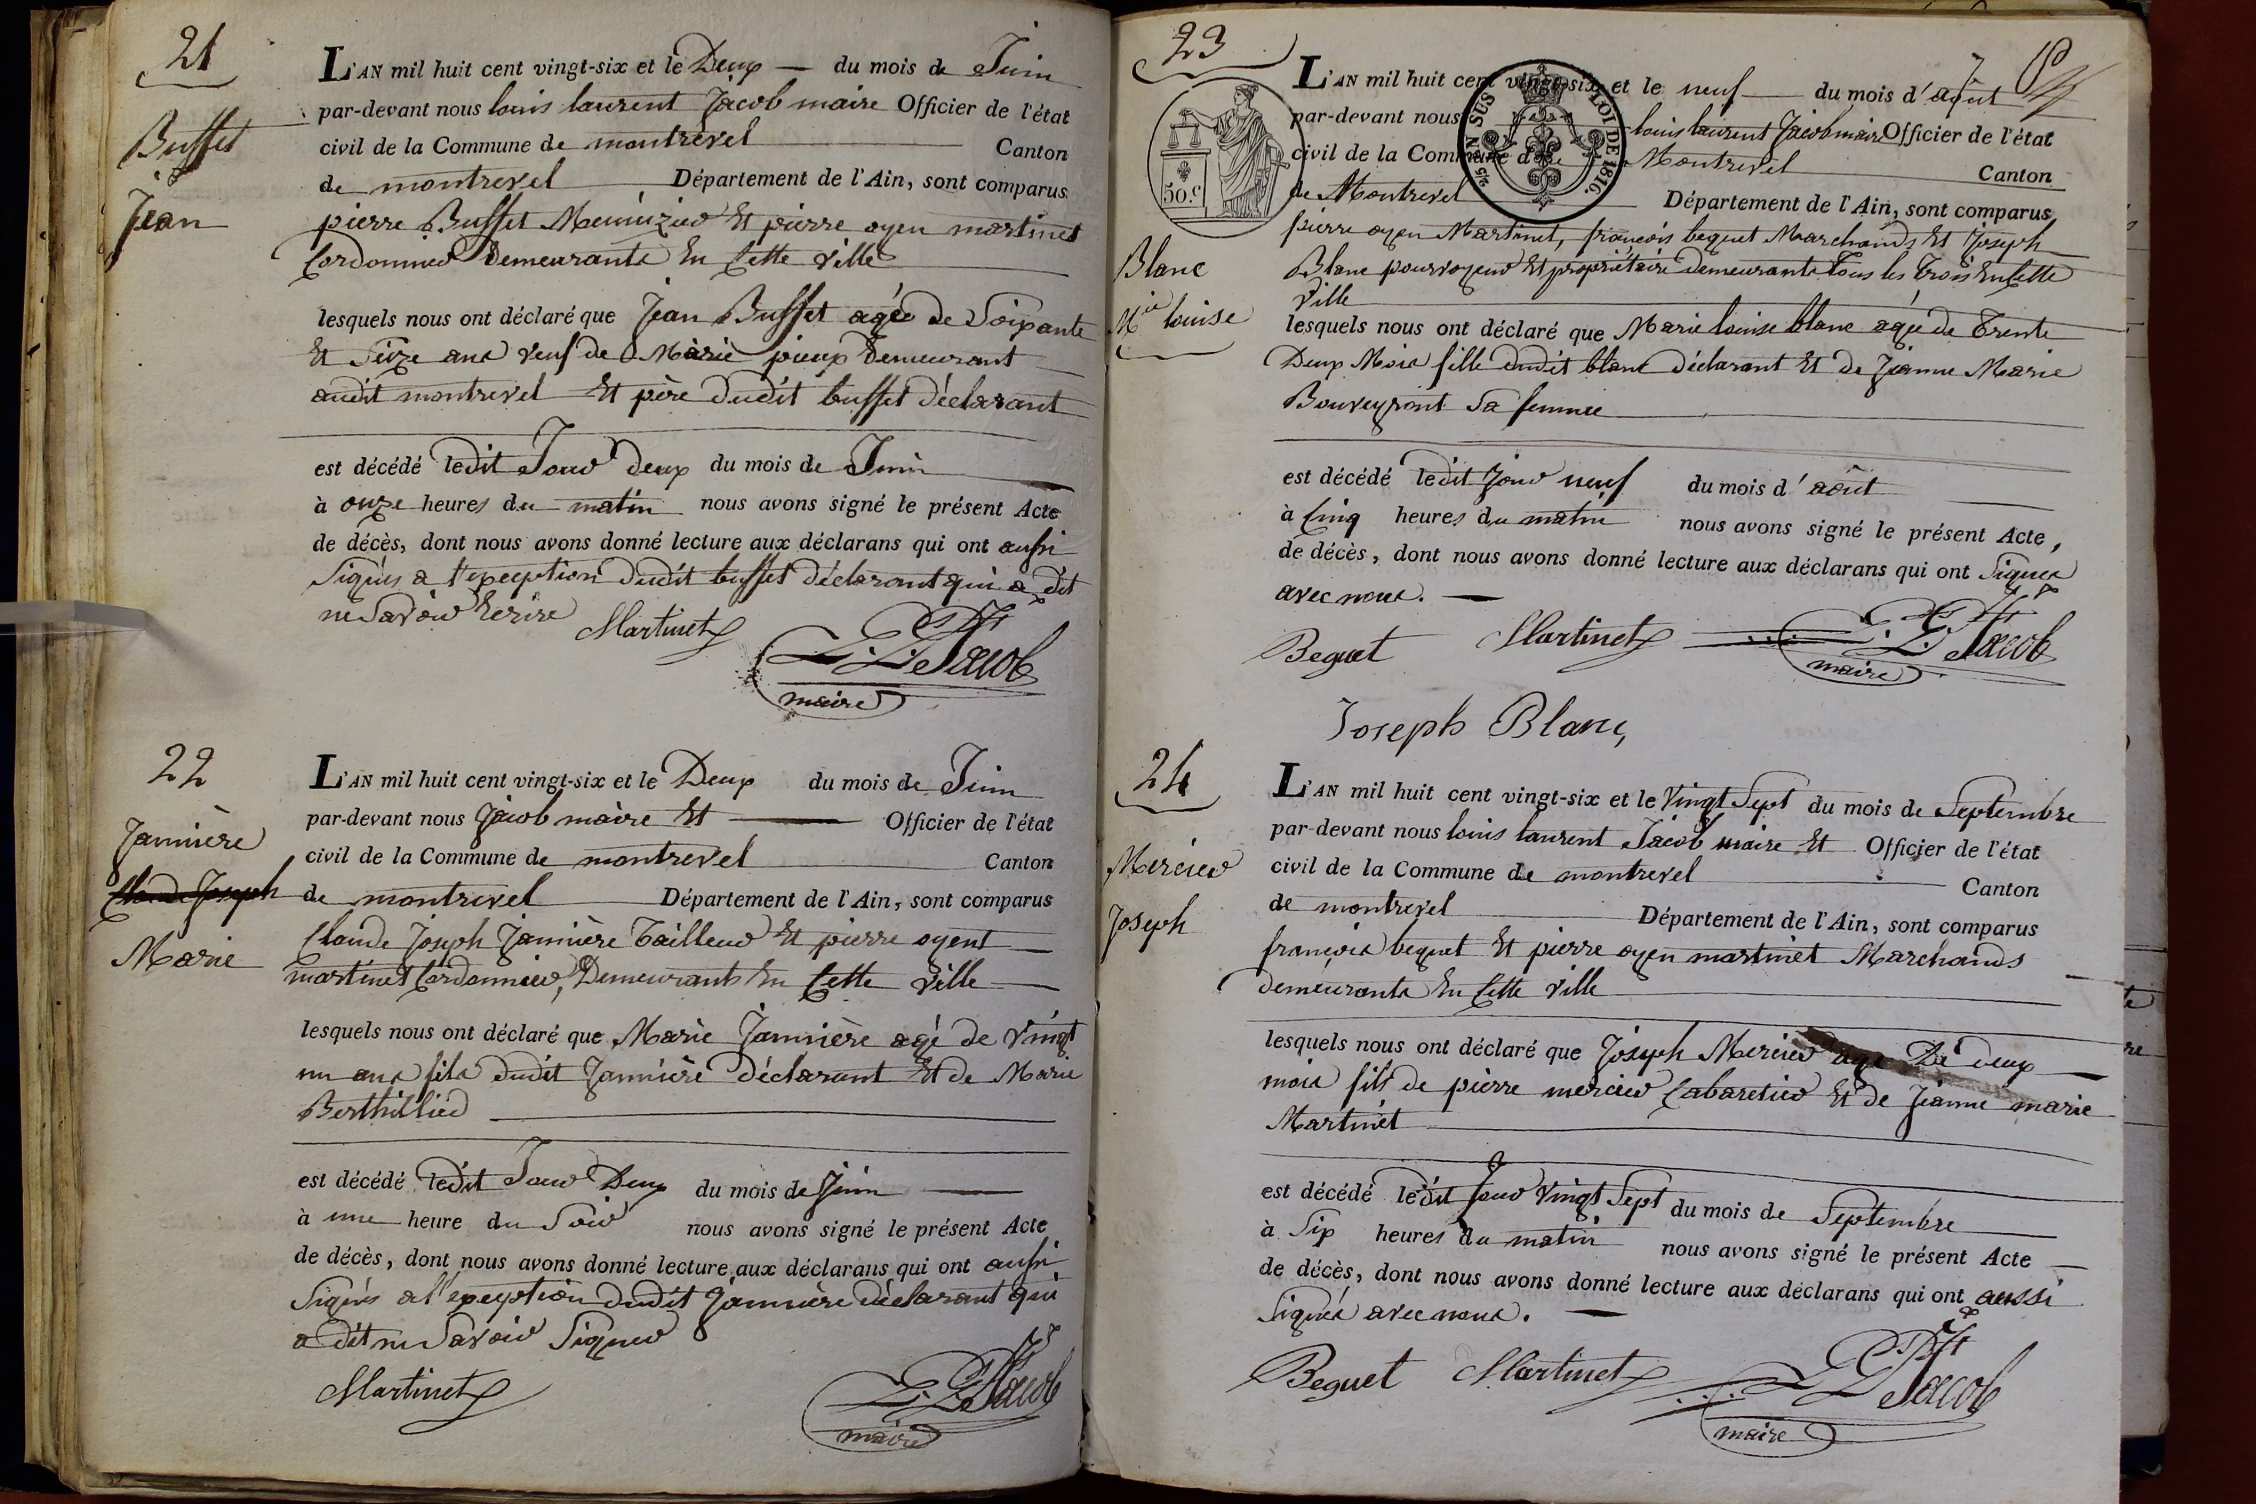 21
Buffet
Jean
L'AN mil huit cent vingt-six et le Deux du mois de Juin
par-devant nous louis laurent Jacob maire Officier de l'état
civil de la Commune de montrevel Canton
de montrevel Département de l'Ain, sont comparus
pierre Buffet Menuizier Et pierre oyen martinet
Cordonnier Demeurants En Cette Ville
lesquels nous ont déclaré que Jean Buffet agée de Soixante
Et Seize ans veuf de Marie pieux Demeurant
audit montrevel Et père Dudit buffet Déclarant
est décédé ledit Jour deux du mois de Juin
à onze heures du matin nous avons signé le présent Acte
de décès, dont nous avons donné lecture aux déclarans qui ont aussi
Signés a l'exception Dudit buffet Déclarant qui a dit
ne Savoir Ecrire Martinet
L. L. Jacob
maire
22
Jannière
Claude Joseph
Marie
L'AN mil huit cent vingt-six et le Deux du mois de Juin
par-devant nous Jacob maire Et Officier de l'état
civil de la Commune de montrevel Canton
de montrevel Département de l'Ain, sont comparus
Claude Joseph Jannière Tailleur Et pierre oyent
martinet Cordonnier, Demeurants En Cette Ville
lesquels nous ont déclaré que Marie Jannière agé de Vingt
un ans fils dudit Jannière Déclarant Et de Marie
Berthillied
est décédé ledit Jour Deux du mois de Juin
à une heure du Soir nous avons signé le présent Acte
de décès, dont nous avons donné lecture aux déclarans qui ont aussi
Signés a l'exception dudit Jannière Déclarant qui
a Dit ne Savoir Signer
Martinet
L. L. Jacob
maire
23
50.c
TIM SUS
LOI DE 1816.
Blanc
Mie louise
L'AN mil huit cent vingt-six et le neuf du mois d'août
par-devant nous louis laurent Jacob maire Officier de l'état
civil de la Commune de Montrevel Canton
de Montrevel Département de l'Ain, sont comparus
pierre oyen Martinet, françois beguet Marchands Et Joseph
Blanc pourvoyeur Et propriétaire demeurants Tous les Trois En Cette
Ville
lesquels nous ont déclaré que Marie louise blanc agée de Trente
Deux Mois fille dudit blanc Déclarant Et de Jeanne Marie
Bouveyront Sa femme
est décédé ledit Jour neuf du mois d'août
à Cinq heures du matin nous avons signé le présent Acte,
de décès, dont nous avons donné lecture aux déclarans qui ont Signés
avec nous.
Beguet Martinet L. L. Jacob
maire
Joseph Blanc
24
Mercier
Joseph
L'AN mil huit cent vingt-six et le Vingt Sept du mois de Septembre
par-devant nous louis laurent Jacob maire Et Officier de l'état
civil de la Commune de montrevel Canton
de montrevel Département de l'Ain, sont comparus
françois beguet Et pierre oyen martinet Marchands
demeurants En Cette Ville
lesquels nous ont déclaré que Joseph Mercier age De deux
mois fils de pierre mercier Cabaretier Et de Jeanne marie
Martinet
est décédé ledit Jour Vingt Sept du mois de Septembre
à Six heures du matin nous avons signé le présent Acte
de décès, dont nous avons donné lecture aux déclarans qui ont aussi
Signés avec nous.
Beguet Martinet L. L. Jacob
maire